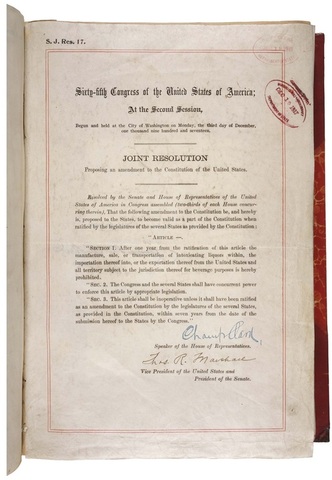 S. J. Res. 17.
Sixty-fifth Congress of the United States of America;
At the Second Session,
Begun and held at the City of Washington on Monday, the third day of December,
one thousand nine hundred and seventeen.
JOINT RESOLUTION
Proposing an amendment to the Constitution of the United States.
Resolved by the Senate and House of Representatives of the United
States of America in Congress assembled (two-thirds of each House concur-
ring therein), That the following amendment to the Constitution be, and hereby
is, proposed to the States, to become valid as a part of the Constitution when
ratified by the legislatures of the several States as provided by the Constitution:
"Article —.
"Section 1. After one year from the ratification of this article the
manufacture, sale, or transportation of intoxicating liquors within, the
importation thereof into, or the exportation thereof from the United States and
all territory subject to the jurisdiction thereof for beverage purposes is hereby
prohibited.
"Sec. 2. The Congress and the several States shall have concurrent power
to enforce this article by appropriate legislation.
"Sec. 3. This article shall be inoperative unless it shall have been ratified
as an amendment to the Constitution by the legislatures of the several States,
as provided in the Constitution, within seven years from the date of the
submission hereof to the States by the Congress."
Champ Clark
Speaker of the House of Representatives.
Thos. R. Marshall
Vice President of the United States and
President of the Senate.
DEC 19 1917